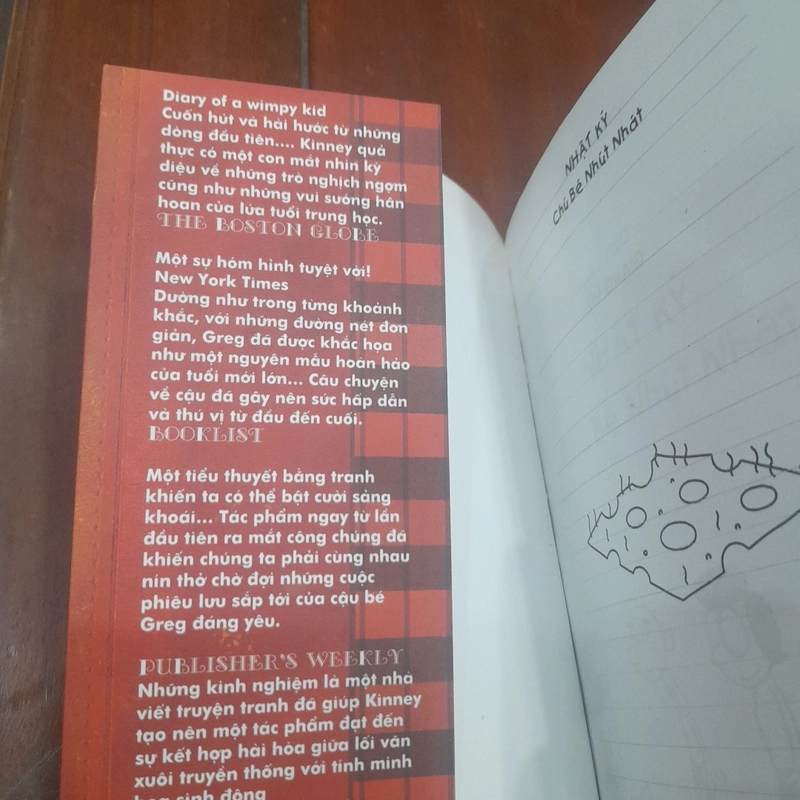 Diary of a wimpy kid
Cuốn hút và hài hước từ những
dòng đầu tiên.... Kinney quả
thực có một con mắt nhìn kỳ
diệu về những trò nghịch ngợm
cũng như những vui sướng hân
hoan của lứa tuổi trung học.
THE BOSTON GLOBE
Một sự hóm hỉnh tuyệt vời!
New York Times
Dường như trong từng khoảnh
khắc, với những đường nét đơn
giản, Greg đã được khắc họa
như một nguyên mẫu hoàn hảo
của tuổi mới lớn... Câu chuyện
về cậu đã gây nên sức hấp dẫn
và thú vị từ đầu đến cuối.
BOOKLIST
Một tiểu thuyết bằng tranh
khiến ta có thể bật cười sảng
khoái... Tác phẩm ngay từ lần
đầu tiên ra mắt công chúng đã
khiến chúng ta phải cùng nhau
nín thở chờ đợi những cuộc
phiêu lưu sắp tới của cậu bé
Greg đáng yêu.
PUBLISHER'S WEEKLY
Những kinh nghiệm là một nhà
viết truyện tranh đã giúp Kinney
tạo nên một tác phẩm đạt đến
sự kết hợp hài hòa giữa lối văn
xuôi truyền thống với tính minh
họa sinh động
NHẬT KÝ
Chú Bé Nhút Nhát